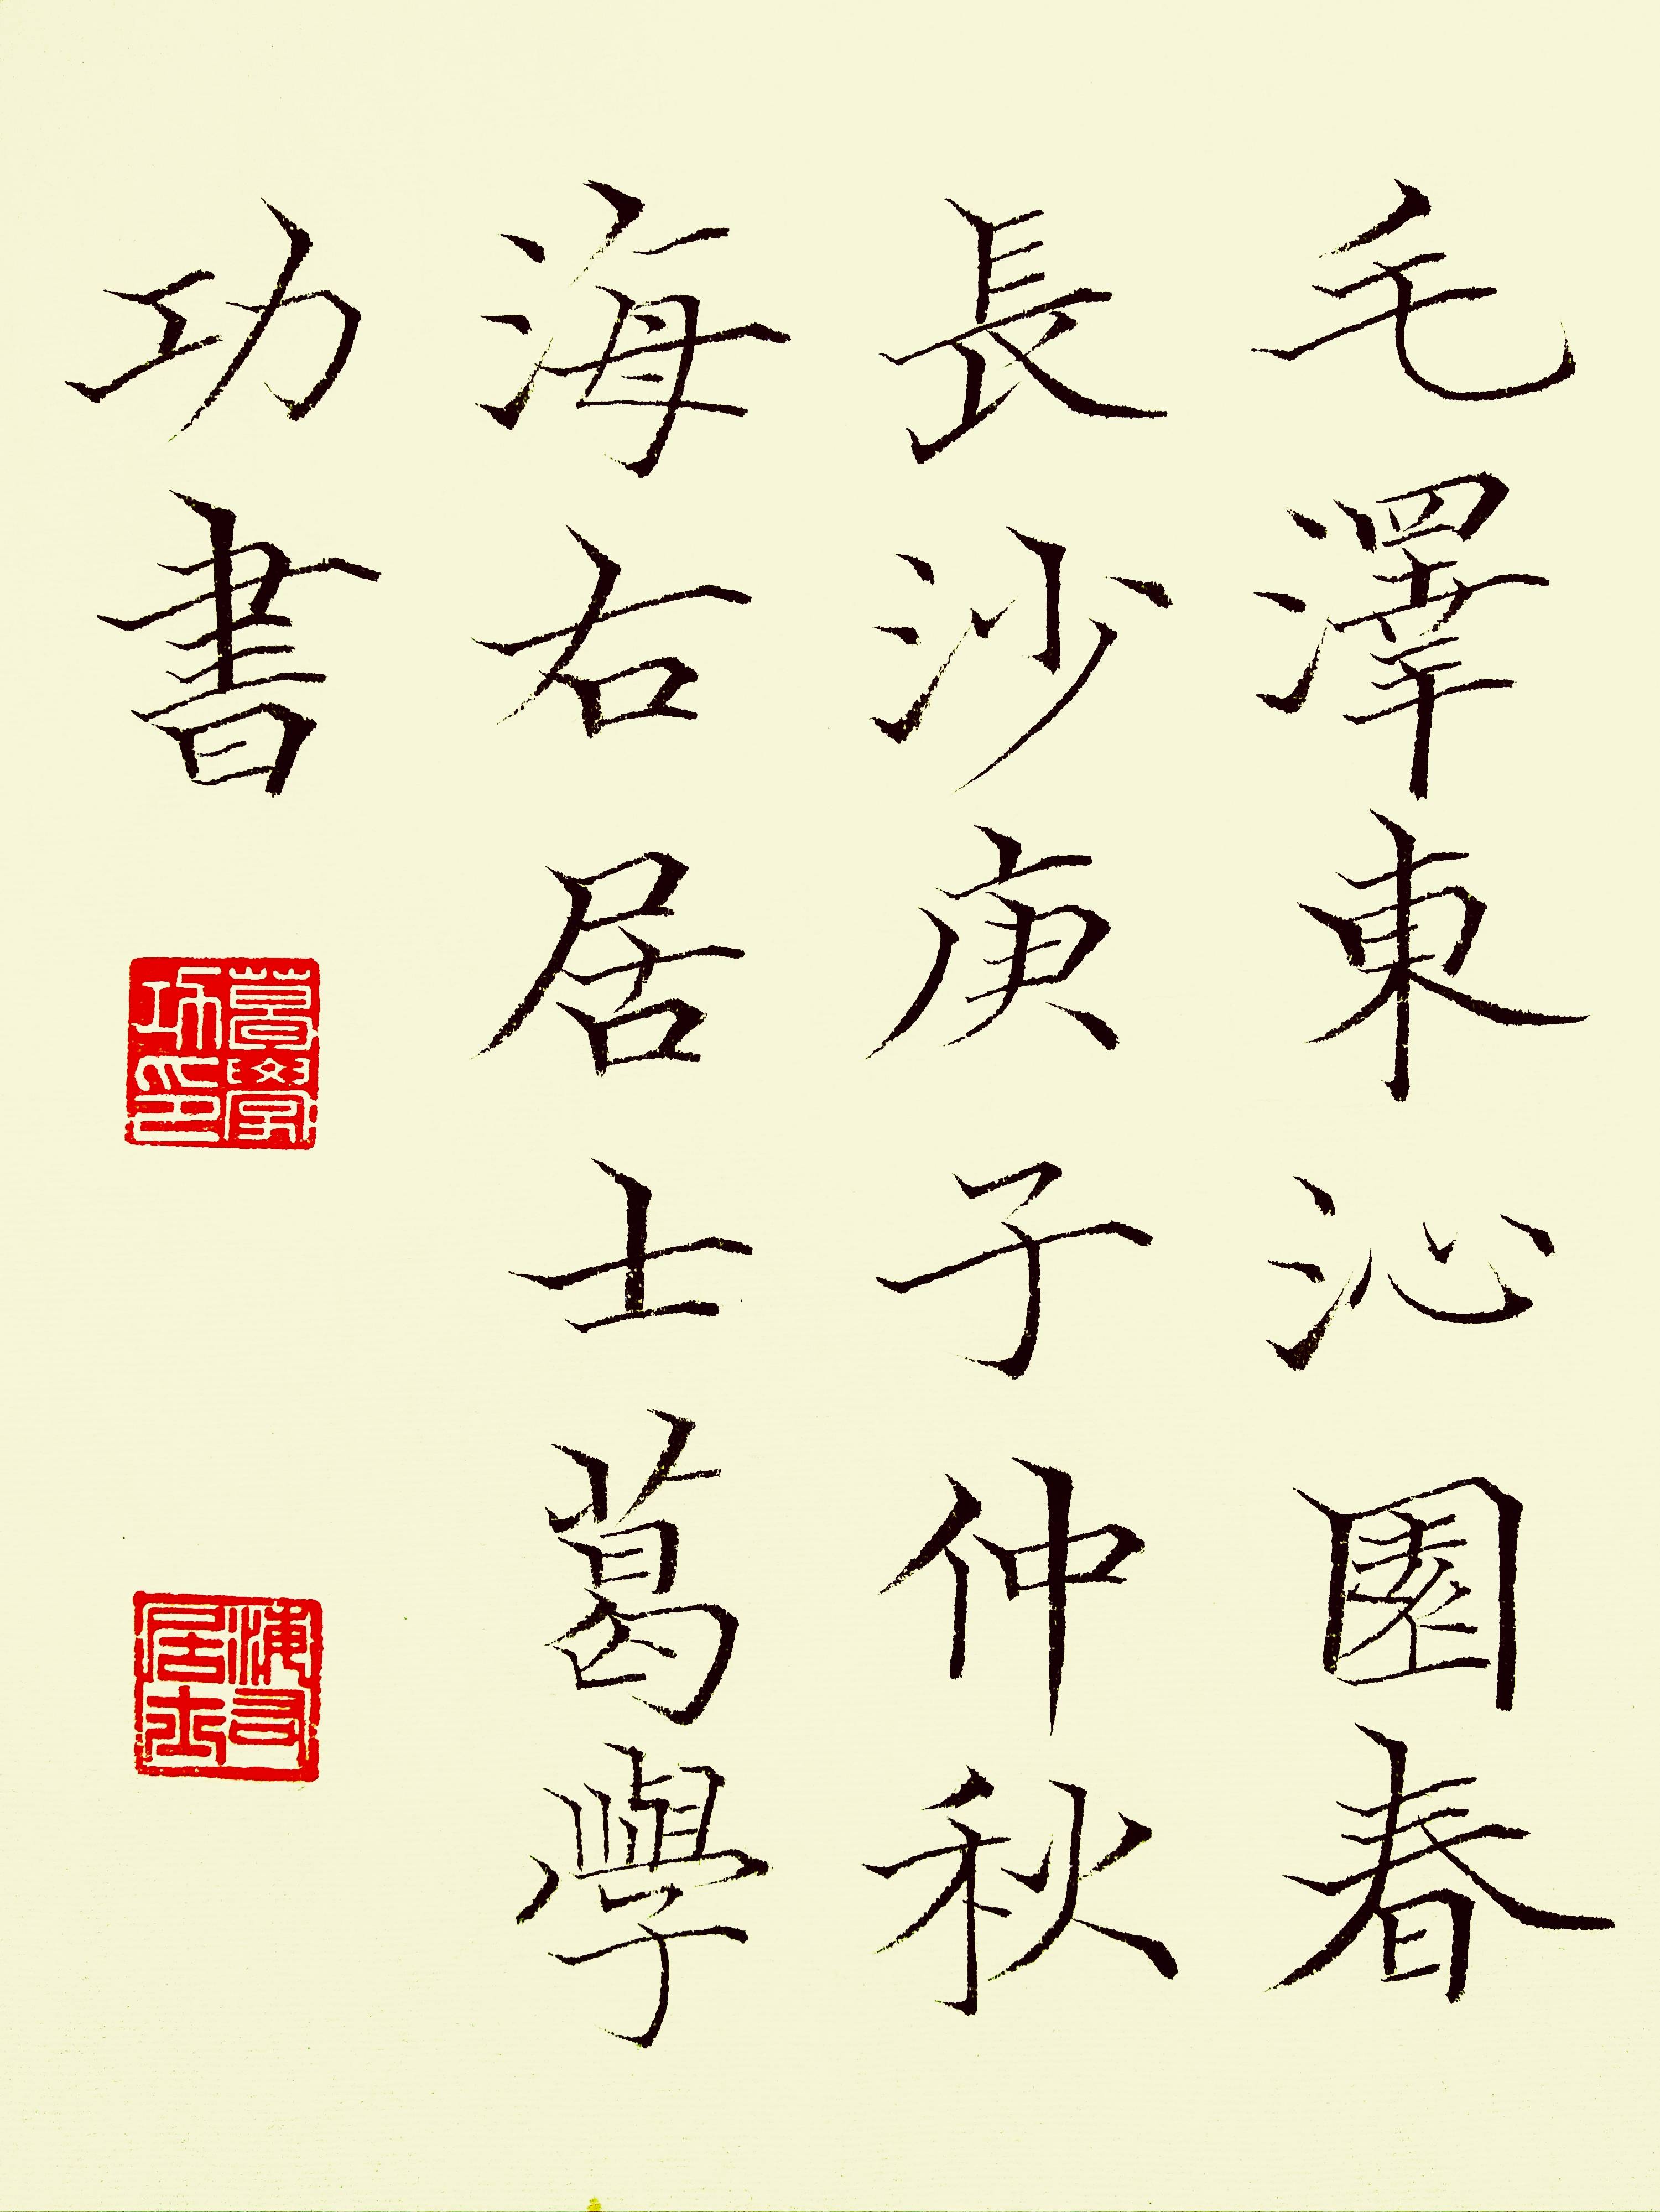 毛澤東沁園春
長沙庚子仲秋
海右居士葛學
功書
葛學功印
海右居士